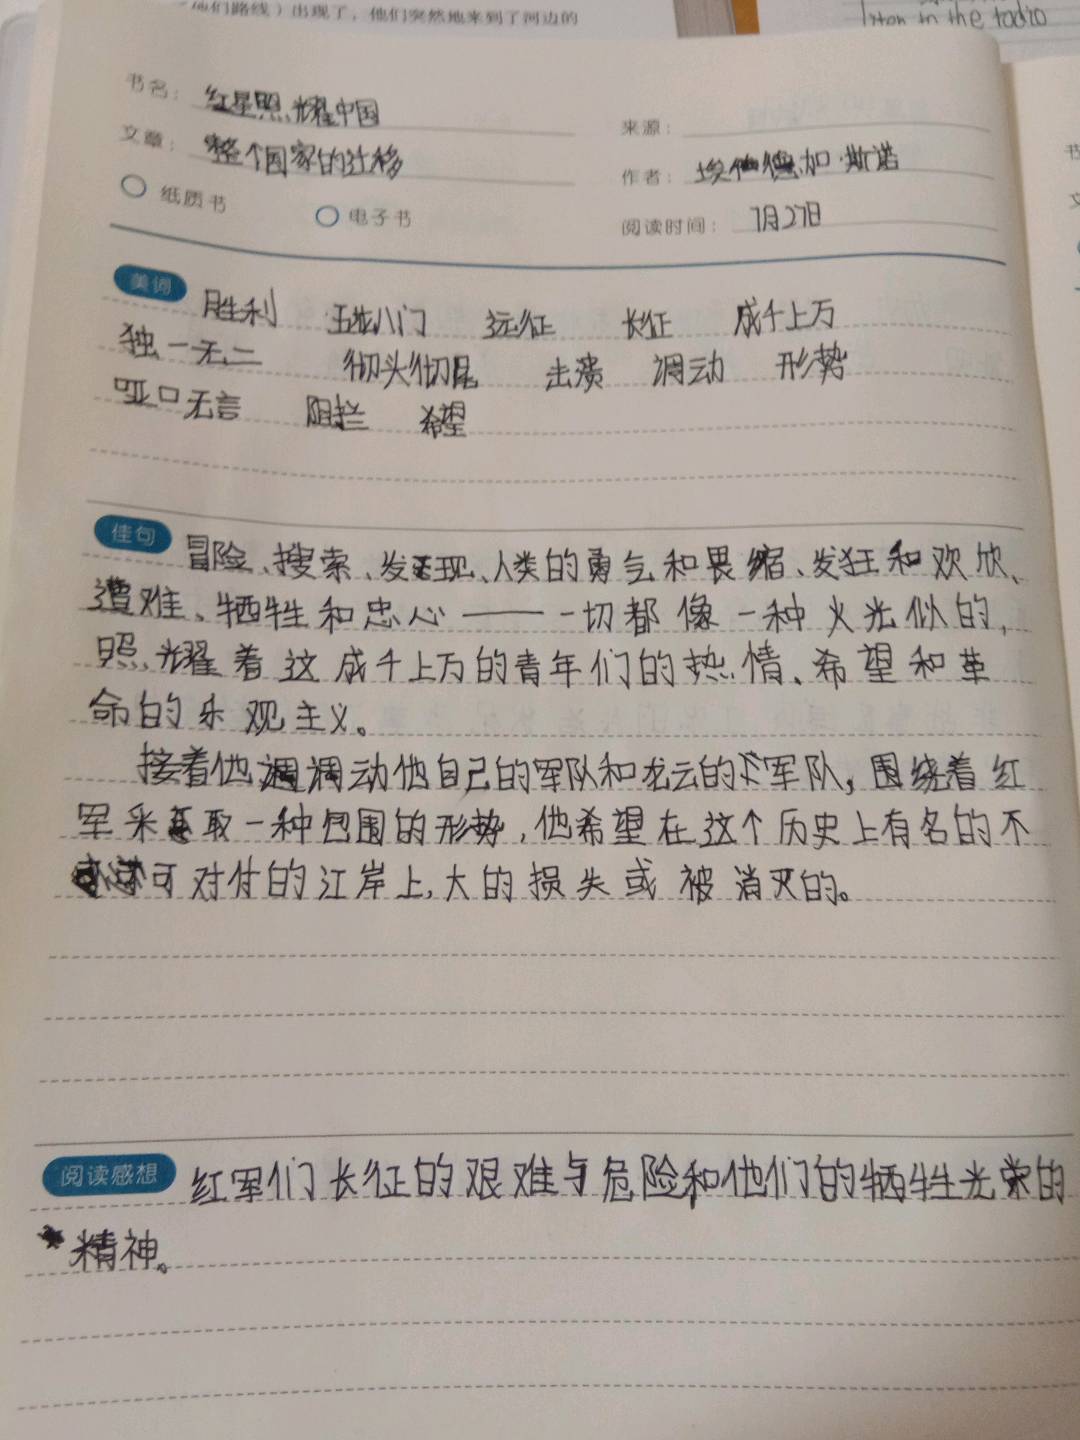 他们路线）出现了，他们突然地来到了河边的
listen in the
书名：红星照耀中国
来源：
文章：整个国家的迁移
作者：埃德加·斯诺
纸质书 电子书
阅读时间：7月27日
美词 胜利 五花八门 远征 长征 成千上万
独一无二 彻头彻尾 击溃 调动 形势
哑口无言 阻拦 希望
佳句 冒险、搜索、发现、人类的勇气和畏缩、发狂和欢欣、
遭难、牺牲和忠心——一切都像一种火光似的，
照耀着这成千上万的青年们的热情、希望和革
命的乐观主义。
接着他调动他自己的军队和龙云的军队，围绕着红
军采取一种包围的形势，他希望在这个历史上有名的不
可对付的江岸上，大的损失或被消灭的。
阅读感想 红军们长征的艰难与危险和他们的牺牲光荣的
精神。